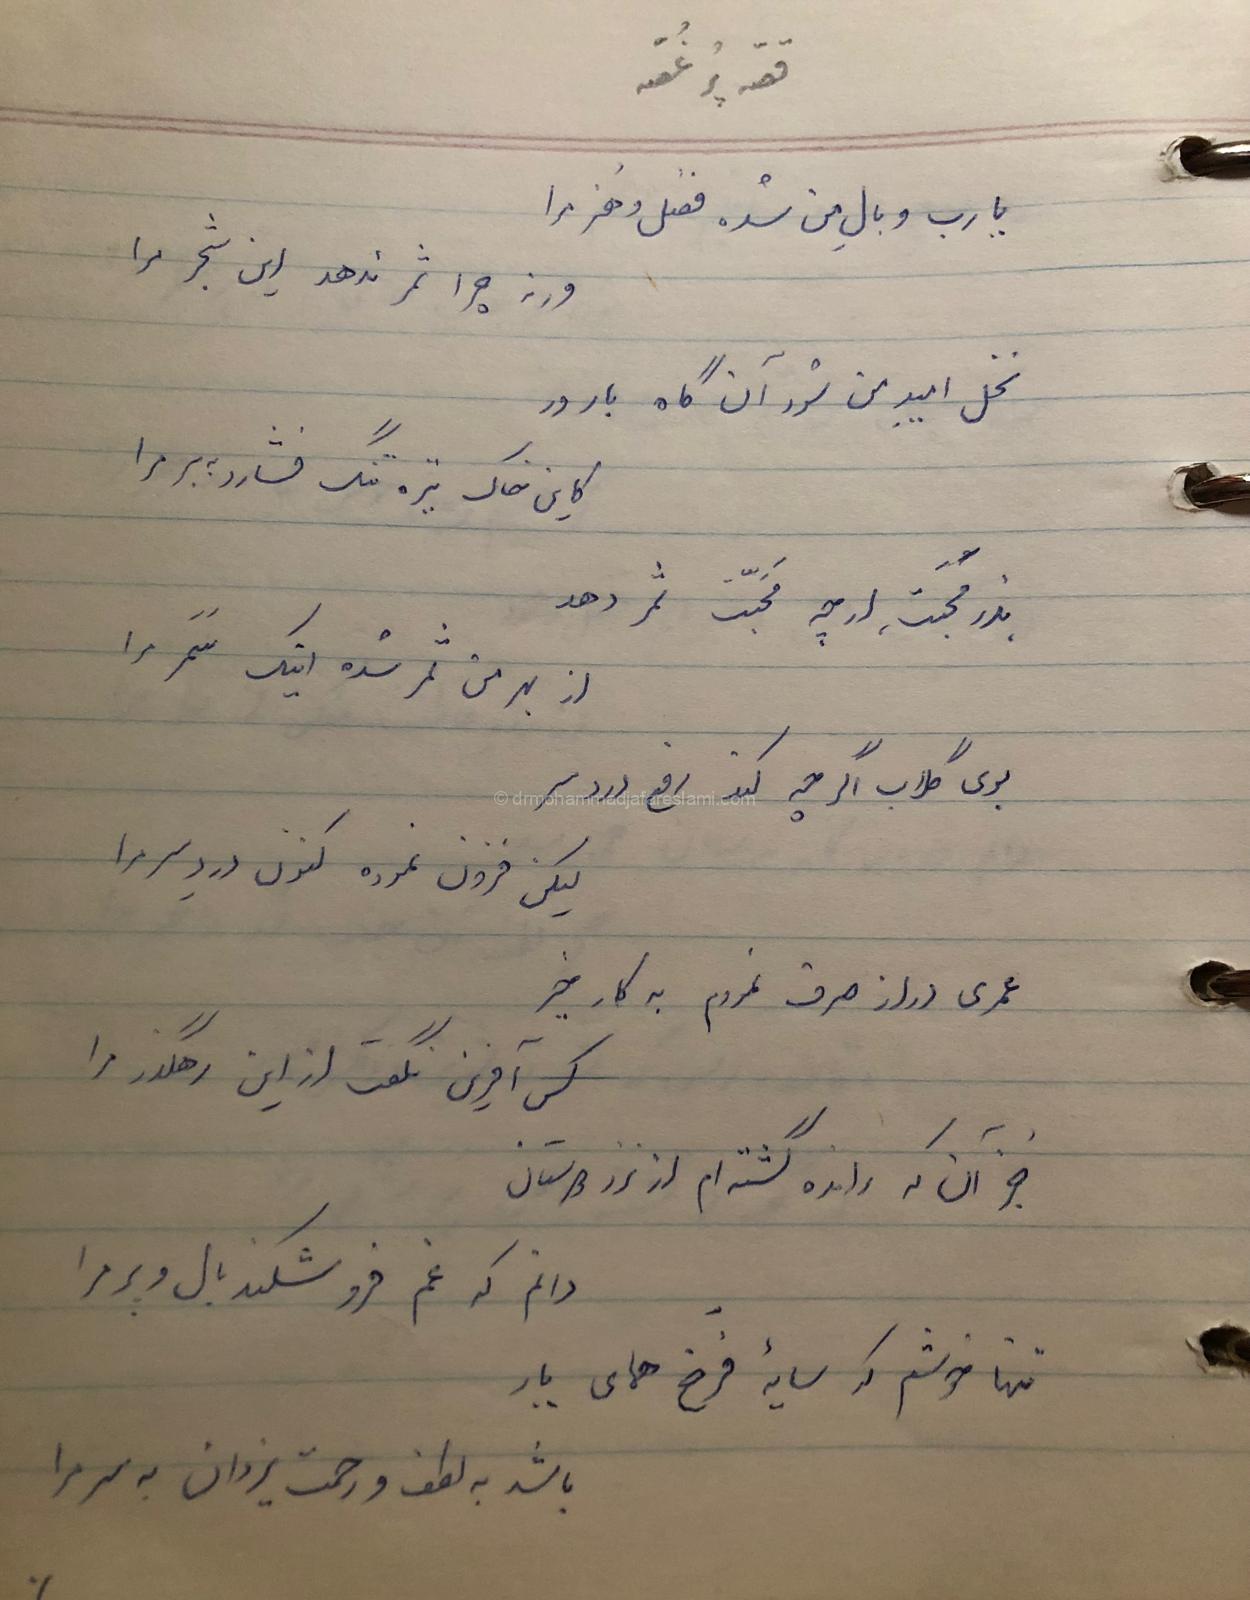 قصّه پُر غُصّه
یا رب وبالِ من شده فضل و هنر مرا
ورنه چرا ثمر ندهد این شجر مرا
نخل امیدِ من شود آن گاه بارور
کاین خاک تیره تنگ فشارد به بر مرا
بذر مُحَبَّت، ارچه مَحَبّت ثمر دهد
از بهر من ثمر شده اینک سَمَر مرا
بوی گلاب اگرچه کند رفع دردسر
© drmohammadjafareslami.com
لیکن فزون نموده کنون دردِسر مرا
عمری دراز صرف نمودم به کار خیر
کس آفرین نگفت از این رهگذر مرا
جُز آن که رانده گشته ام از نزد دوستان
دانم که غم فرو شکند بال و پر مرا
تنها خوشم که سایهٔ فَرّخ همای یار
باشد به لطف و رحمت یزدان به سر مرا